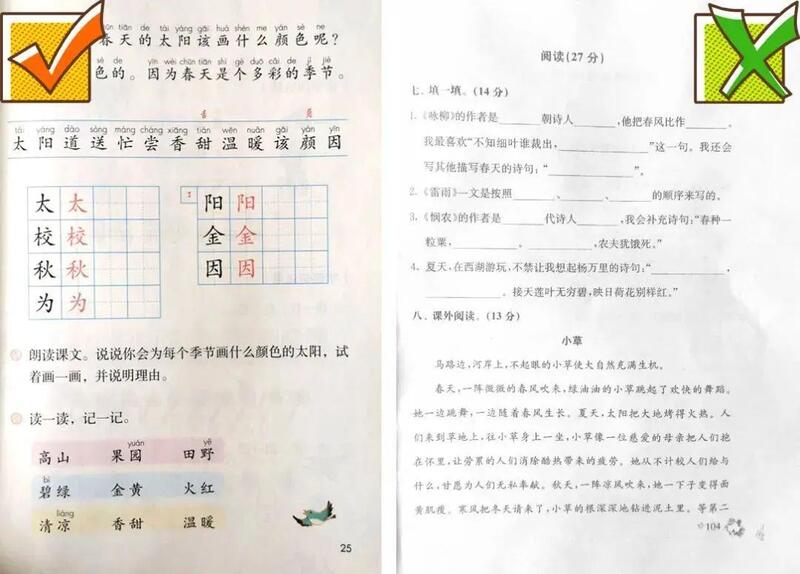 chūn tiān de tài yáng gāi huà shén me yán sè ne
春天的太阳该画什么颜色呢？
sè de yīn wèi chūn tiān shì gè duō cǎi de jì jié
色的。因为春天是个多彩的季节。
舌 页
tài yáng dào sòng máng cháng xiāng tián wēn nuǎn gāi yán yīn
太阳道送忙尝香甜温暖该颜因
太 太 阳 阳
校 校 金 金
秋 秋 因 因
为 为
朗读课文。说说你会为每个季节画什么颜色的太阳，试
着画一画，并说明理由。
读一读，记一记。
yuán yě
高山 果园 田野
bì
碧绿 金黄 火红
liáng
清凉 香甜 温暖
25
阅读(27分)
七、填一填。(14分)
1.《咏柳》的作者是______朝诗人______,他把春风比作______。
我最喜欢“不知细叶谁裁出,____________”这一句。我还会
写其他描写春天的诗句:“____________。”
2.《雷雨》一文是按照______、______、______的顺序来写的。
3.《悯农》的作者是______代诗人______,我会补充诗句:“春种一
粒粟,____________。____________,农夫犹饿死。”
4. 夏天,在西湖游玩,不禁让我想起杨万里的诗句:“____________,
____________。接天莲叶无穷碧,映日荷花别样红。”
八、课外阅读。(13分)
小草
马路边,河岸上,不起眼的小草使大自然充满生机。
春天,一阵微微的春风吹来,绿油油的小草跳起了欢快的舞蹈。
她一边跳舞,一边随着春风生长。夏天,太阳把大地烤得火热。人
们来到草地上,往小草身上一坐,小草像一位慈爱的母亲把人们抱
在怀里,让劳累的人们消除酷热带来的疲劳。她从不计较人们给与
什么,甘愿为人们无私奉献。秋天,一阵凉风吹来,她一下子变得面
黄肌瘦。寒风把冬天请来了,小草的根深深地钻进泥土里。等第二
104